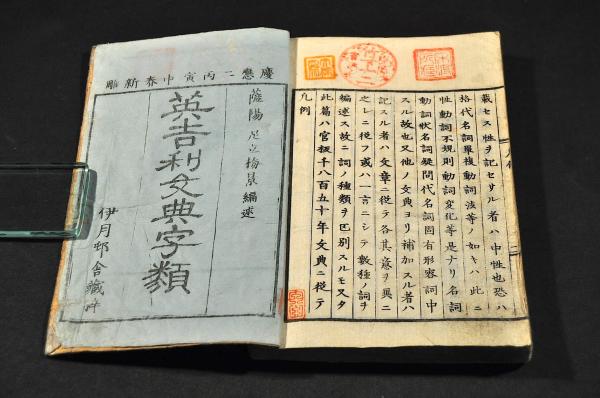 慶應二丙寅中春新雕
蔭陽 足立梅景編述
英吉利文典字類
伊月邨舎藏梓
凡例
此篇ハ官板千八百五十年文典ニ従テ
編述ス故ニ詞ノ種類ヲ区別スルモ又タ
之レニ従フ或ハ一言ニシテ数種ノ詞ヲ
記スル者ハ文章ニ従テ各其意ヲ異ニ
スル故也又他ノ文典ヨリ補加スル者ハ
動詞状名詞疑問代名詞固有形容詞中
性動詞不規則動詞変化等是ナリ名詞
格代名詞単複動詞法等ノ如キハ此ニ
載セス性ヲ記セサル者ハ中性也恐ハ